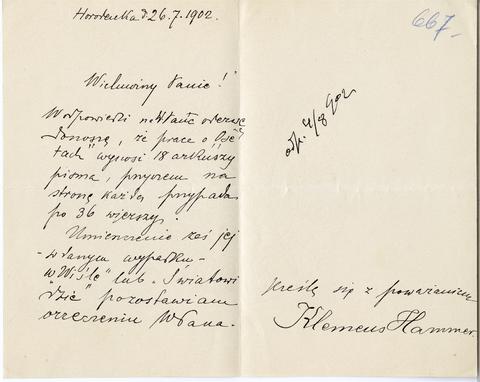 Horodenka d. 26.7.1902.
Wielmożny Panie!
W odpowiedzi na WPana odezwę
donoszę, że praca o „Osę
tach" wynosi 18 arkuszy
pisma, przyczem na
stronę każdą przypada
po 36 wierszy.
Umieszczenie zaś jej
- w danym wypadku -
w „Wiśle" lub „Światowi
dzie" pozostawiam
orzeczeniu WPana.
667.
odp. 4/8 902
Kreślę się z poważaniem
Klemens Hammer.